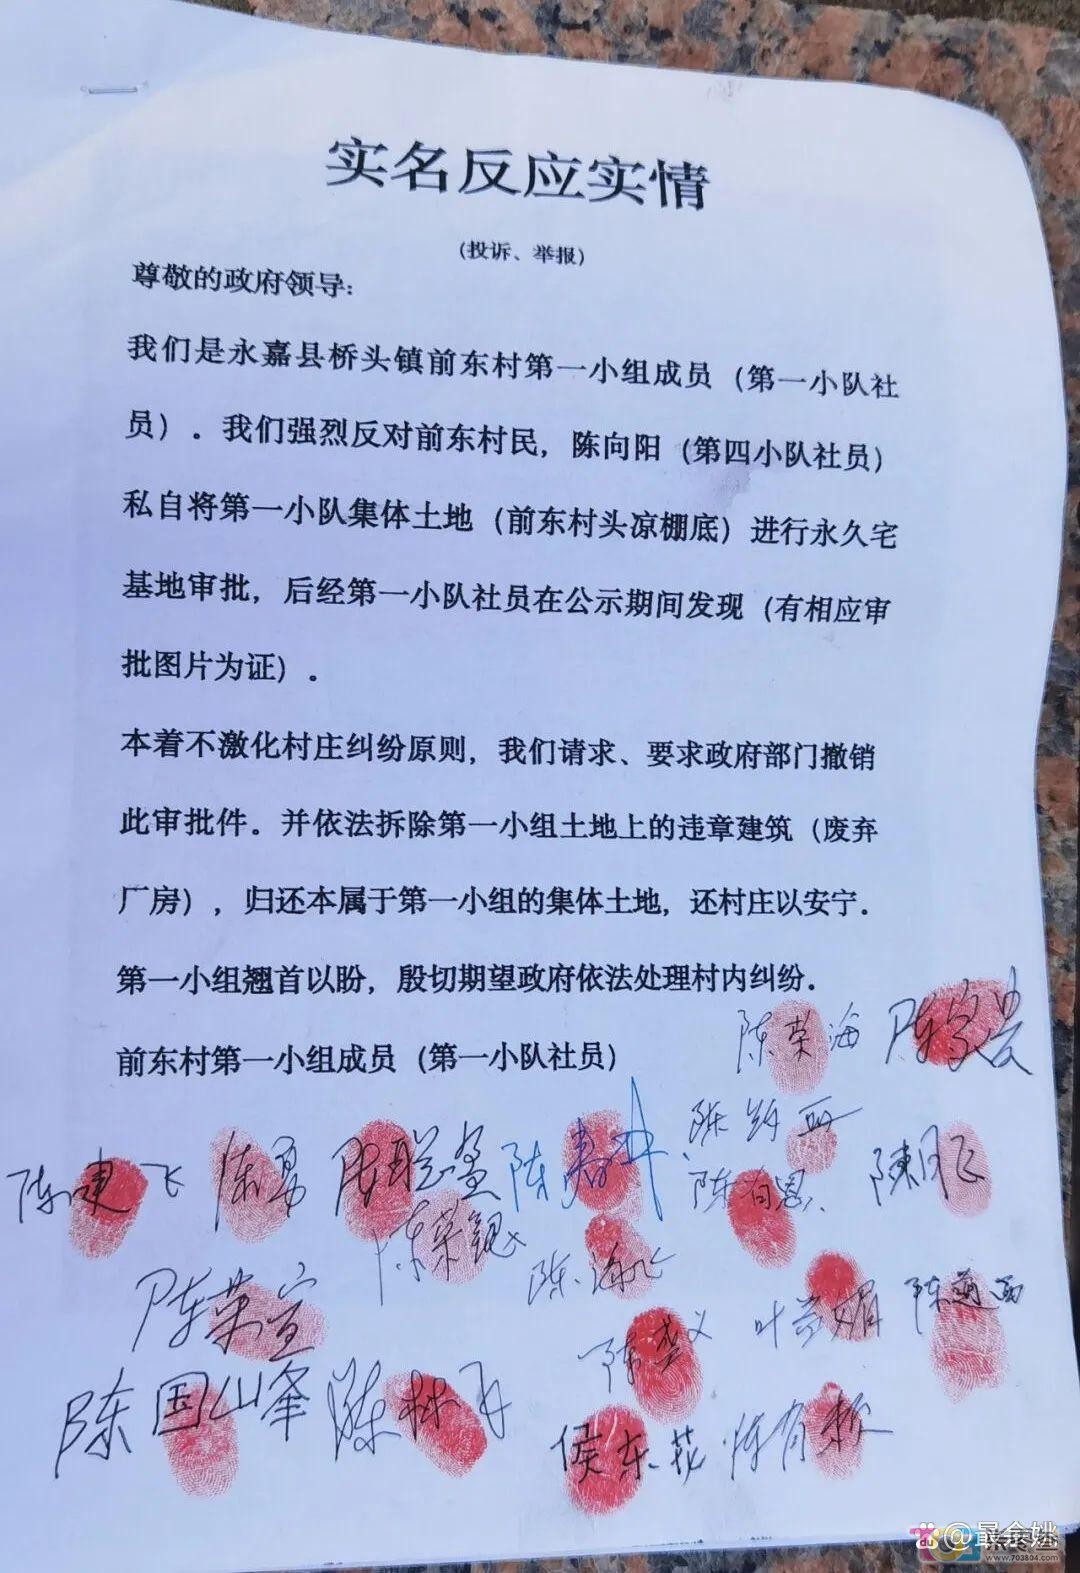 实名反应实情
(投诉、举报)
尊敬的政府领导:
我们是永嘉县桥头镇前东村第一小组成员(第一小队社
员)。我们强烈反对前东村民,陈向阳(第四小队社员)
私自将第一小队集体土地(前东村头凉棚底)进行永久宅
基地审批,后经第一小队社员在公示期间发现(有相应审
批图片为证)。
本着不激化村庄纠纷原则,我们请求、要求政府部门撤销
此审批件。并依法拆除第一小组土地上的违章建筑(废弃
厂房),归还本属于第一小组的集体土地,还村庄以安宁.
第一小组翘首以盼,殷切期望政府依法处理村内纠纷.
前东村第一小组成员(第一小队社员)
陈荣海
陈建飞 陈勇 陈
陈有恩 陈
陈荣 陈海
陈荣宣 叶 媚 陈
陈国峰 陈林
侯东花 陈有
@最余姚
www.703804.com